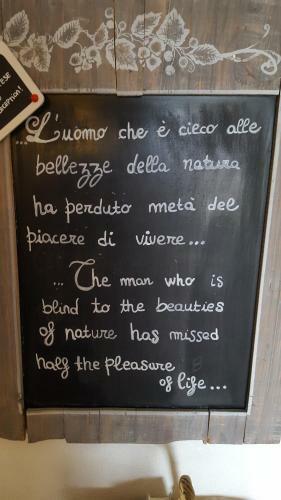 ...L'uomo che è cieco alle
bellezze della natura
ha perduto metà del
piacere di vivere...
... The man who is
blind to the beauties
of nature has missed
half the pleasure
of life...